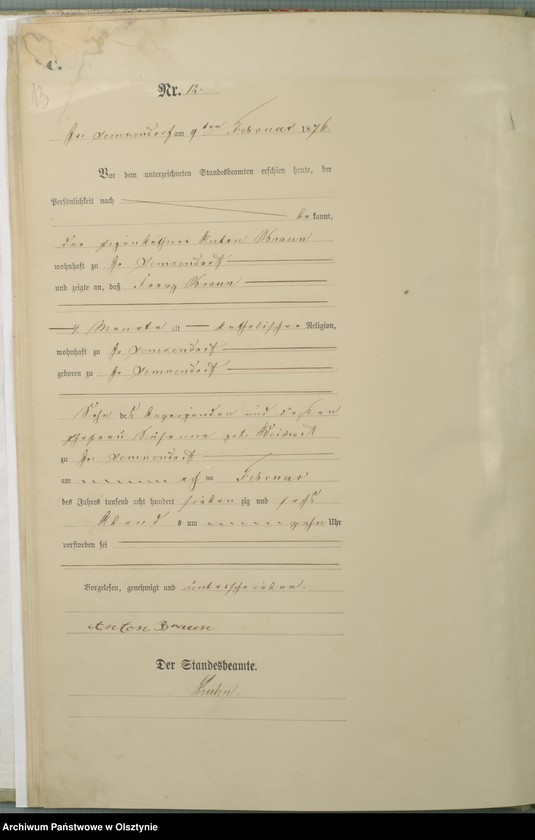 C.
13
Nr. 12.
Gr: Lemkendorf am 9ten Februar 1876.
Vor dem unterzeichneten Standesbeamten erschien heute, der
Persönlichkeit nach
be kannt,
der Anton Braun
wohnhaft zu Gr. Lemkendorf
und zeigte an, daß Franz Braun
4 Monate alt katholischer Religion,
wohnhaft zu Gr. Lemkendorf
geboren zu Gr. Lemkendorf
Sohn des Anzeigenden und dessen
Ehefrau Susanna geb.
zu Gr: Lemkendorf
am acht im Februar
des Jahres tausend acht hundert sieben zig und sechs
Abend s um zehn Uhr
verstorben sei
Vorgelesen, genehmigt und unterschrieben.
Anton Braun
Der Standesbeamte.
Archiwum Państwowe w Olsztynie